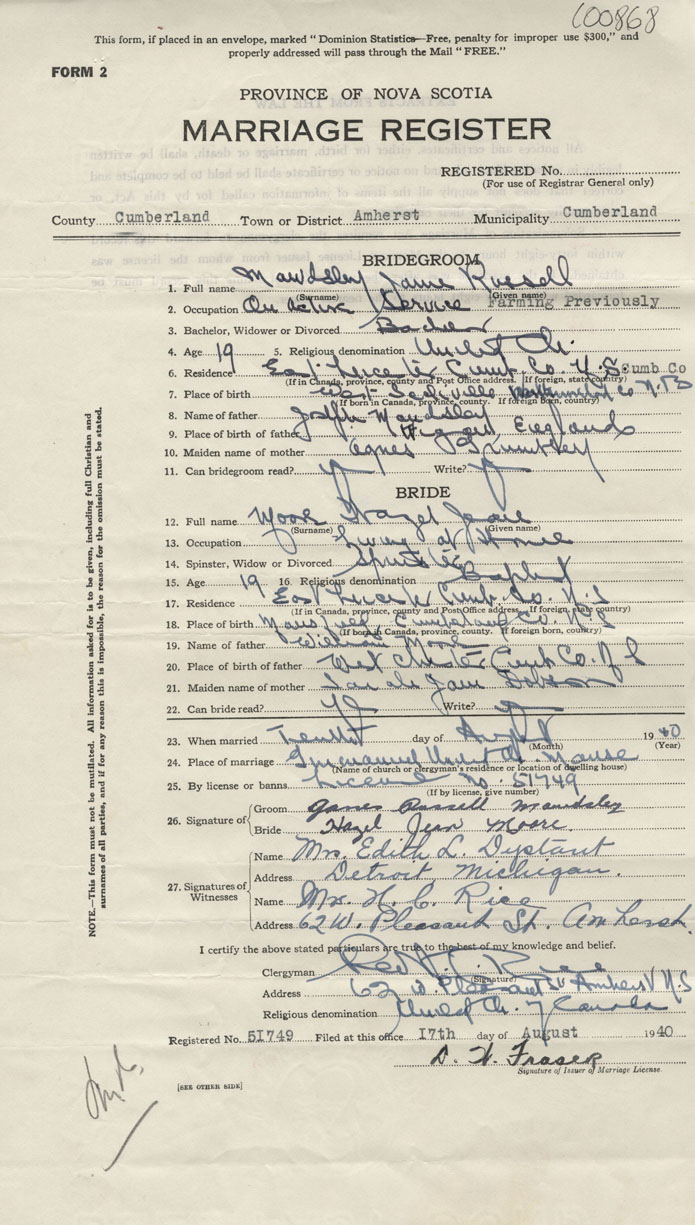 100868
This form, if placed in an envelope, marked "Dominion Statistics—Free, penalty for improper use $300," and
properly addressed will pass through the Mail "FREE."
FORM 2
PROVINCE OF NOVA SCOTIA
MARRIAGE REGISTER
REGISTERED No.
(For use of Registrar General only)
County Cumberland Town or District Amherst Municipality Cumberland
BRIDEGROOM
1. Full name Mawdsley James Russell
(Surname) (Given name)
2. Occupation On Active Service Farming Previously
3. Bachelor, Widower or Divorced Bachelor
4. Age 19 5. Religious denomination United Ch.
6. Residence East Cumb. Co. N.S Cumb Co
(If in Canada, province, county and Post Office address. If foreign, state country)
7. Place of birth West Sackville Co N.B
(If born in Canada, province, county. If foreign born, country)
8. Name of father Joseph Mawdsley
9. Place of birth of father England
10. Maiden name of mother Agnes
11. Can bridegroom read? Write?
BRIDE
12. Full name Moore Hazel Jean
(Surname) (Given name)
13. Occupation Living at Home
14. Spinster, Widow or Divorced Spinster
15. Age 19 16. Religious denomination Baptist
17. Residence East Cumb. Co. N.S
(If in Canada, province, county and Post Office address. If foreign, state country)
18. Place of birth Mansfield Cumberland Co. N.S
(If born in Canada, province, county. If foreign born, country)
19. Name of father William Moore
20. Place of birth of father West Cumb Co.
21. Maiden name of mother Jane
22. Can bride read? Write?
23. When married day of August 1940
(Month) (Year)
24. Place of marriage Immanuel United Ch. Manse
(Name of church or clergyman's residence or location of dwelling house)
25. By license or banns License No. 51749
(If by license, give number)
26. Signature of Groom James Russell Mawdsley
Bride Hazel Jean Moore.
27. Signatures of Witnesses
Name Mrs. Edith L. Dystant
Address Detroit Michigan.
Name Mrs. H. C. Rice
Address 62 W. Pleasant St. Amherst.
I certify the above stated particulars are true to the best of my knowledge and belief.
Clergyman Rev. Rice
(Signature)
Address 62 W. Pleasant St Amherst N.S
Religious denomination United Ch. of Canada
Registered No. 51749 Filed at this office 17th day of August 1940
D. W. Fraser
Signature of Issuer of Marriage License.
[SEE OTHER SIDE]
NOTE.—This form must not be mutilated. All information asked for is to be given, including full Christian and
surnames of all parties, and if for any reason this is impossible, the reason for the omission must be stated.